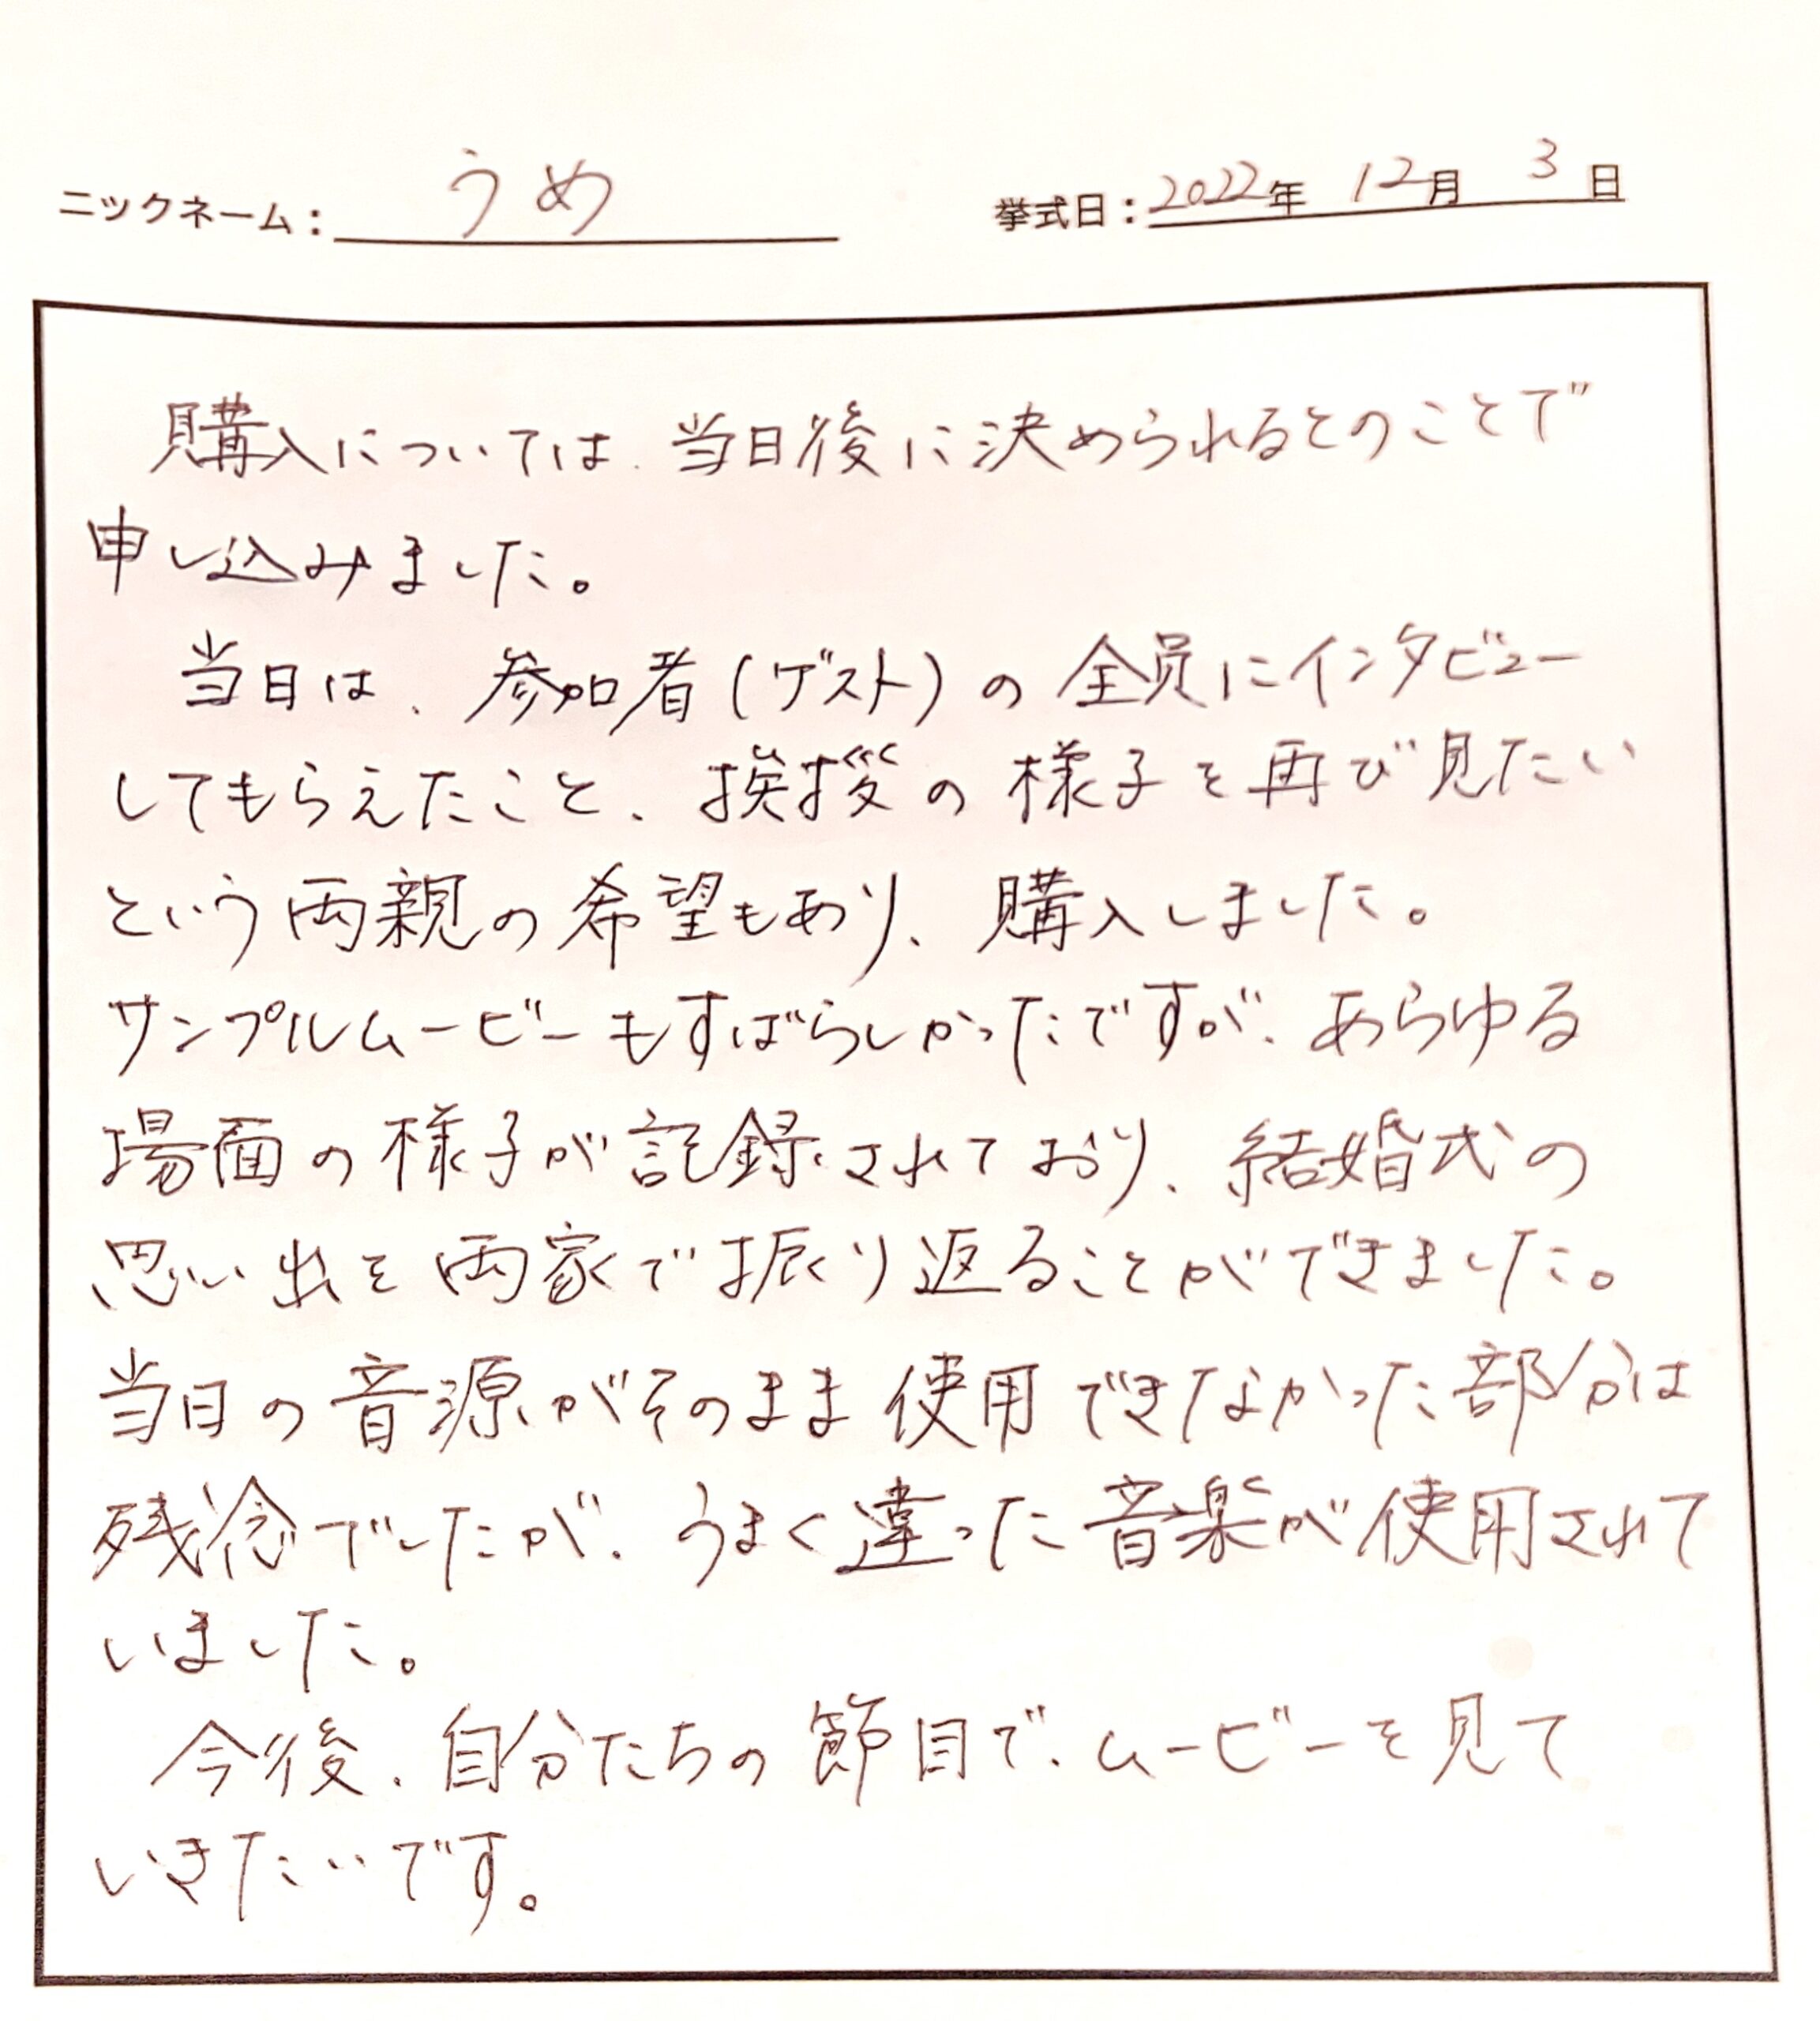 ニックネーム： うめ 挙式日：2022年 12月 3日
購入については、当日後に決められるとのことで
申し込みました。
当日は、参加者(ゲスト)の全員にインタビュー
してもらえたこと、挨拶の様子を再び見たい
という両親の希望もあり、購入しました。
サンプルムービーもすばらしかったですが、あらゆる
場面の様子が記録されており、結婚式の
思い出を両家で振り返ることができました。
当日の音源がそのまま使用できなかった部分は
残念でしたが、うまく違った音楽が使用されて
いました。
今後、自分たちの節目で、ムービーを見て
いきたいです。